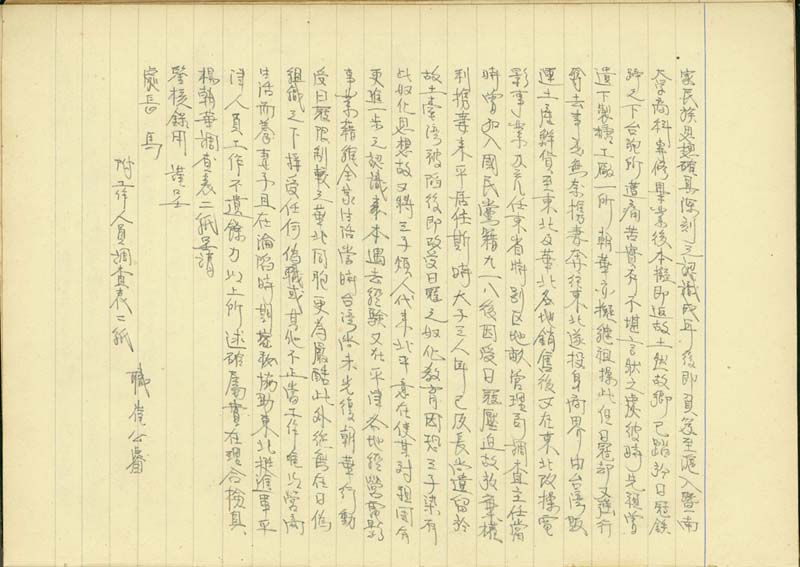 家長族思想確具深刻之認識成年後即負笈至滬入暨南
大學商科專修畢業後本擬即返故土然故鄉已踏於日寇鐵
蹄之下台胞所遭痛苦實有不堪言狀之處彼時先祖曾
遺下製糖工廠一所朝華亦擬繼祖操此但日寇却又強行
奪去事為無奈携妻奔往東北遂投身商界由台灣販
運土產鮮貨至東北及華北各地銷售後又在東北改操電
影事業及充任東省特別區地畝管理局調查主任當
時曾加入國民黨籍九一八後因受日寇壓迫故放棄權
利携妻來平居住斯時大子三人年已及長尚遺留於
故土臺灣被陷後即改受日寇之奴化教育因恐三子染有
此奴化思想故又將三子煩人代來北平意在使其對祖国有
更進一步之認識素本過去經驗又在平津各地經營電影
事業藉維全家生活當時台湾尚未光復朝華行動
受日寇限制較之華北同胞更為嚴酷此外從無在日偽
組織之下接受任何偽職或其他不正當工作唯以營商
生活而養妻子且在淪陷時期協助東北挺進軍平
津人員工作不遺餘力以上所述確屬實在理合檢具
楊朝華調查表二紙呈請
鑒核錄用 謹呈
處長 馬
附工作人員調查表二紙
職 公